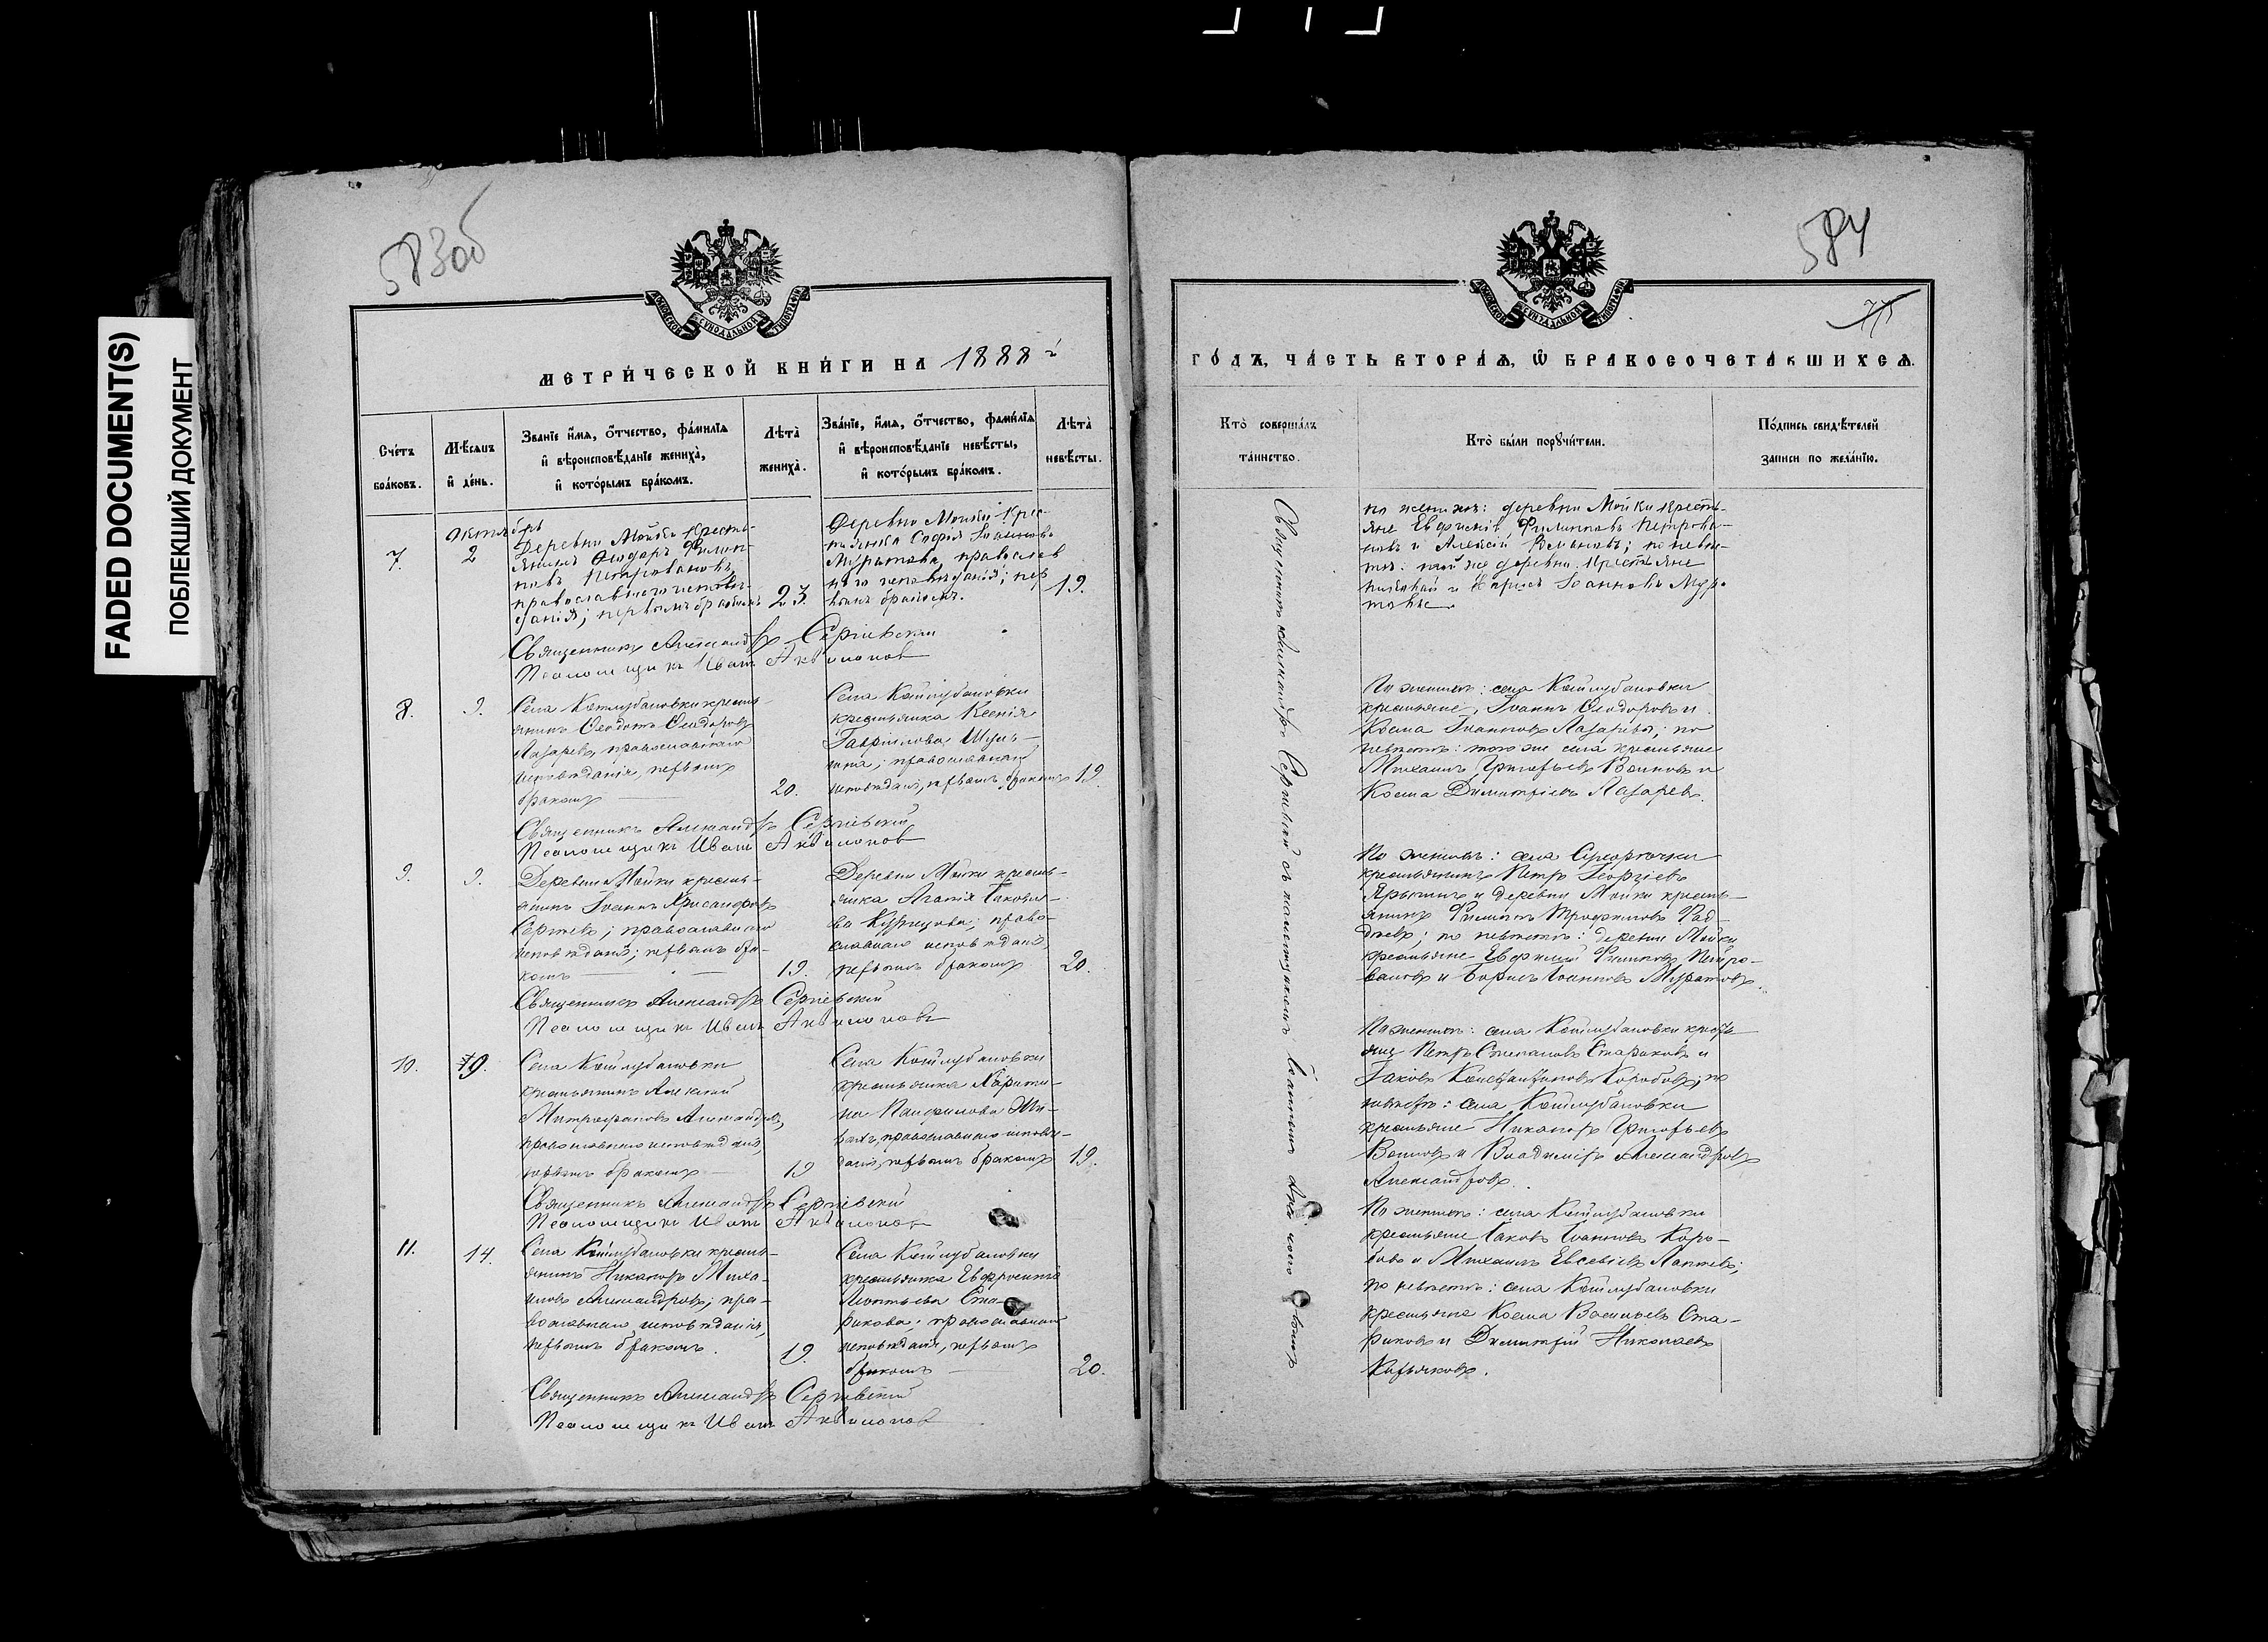 FADED DOCUMENT(S)
ПОБЛЕКШИЙ ДОКУМЕНТ
583об
МЕТРИ́ЧЕСКОЙ КНИ́ГИ НА 1888 й
Сче́тъ бра́ковъ.
Мѣ́сѧцъ и҆ де́нь.
Зва́нїе и҆́мѧ, ѻ҆́тчество, фамилїѧ
и҆ вѣроисповѣ́данїе жениха̀,
и҆ кото́рымъ бра́комъ.
Лѣта̀ жениха̀.
Зва́нїе, и҆́мѧ, ѻ҆́тчество, фами́лїѧ
и҆ вѣроисповѣ́данїе невѣ́сты,
и҆ кото́рымъ бра́комъ.
Лѣта̀ невѣ́сты.
7.
Октябрь
2
Деревни Мойки кресть-
янинъ Ѳеодоръ Филип-
повъ Петровановъ,
православнаго исповѣ-
данія; первымъ бракомъ
23.
Деревни Мойки крес-
тьянка Софія Іоаннова
Муратова, православ
наго исповѣданія; пер
вымъ бракомъ.
19.
Священникъ Александръ Сергіевскій
Псаломщикъ Иванъ Аквилоновъ
8.
9.
Села Котлубановки кресть-
янинъ Ѳеодотъ Ѳеодоровъ
Лазаревъ, православнаго
исповѣданія, первымъ
бракомъ
20.
Села Котлубановки
крестьянка Ксенія
Гавріилова
православнаго
исповѣданія, первымъ бракомъ
19.
Священникъ Александръ Сергіевскій
Псаломщикъ Иванъ Аквилоновъ
9.
9.
Деревни Мойки кресть-
янинъ Іоаннъ Хрисанфовъ
Сергѣевъ; православнаго
исповѣданія; первымъ бра-
комъ
19.
Деревни Мойки кресть-
янка Агапія Іаковле-
ва Кузнецова; право-
славнаго исповѣданія
первымъ бракомъ
20.
Священникъ Александръ Сергіевскій
Псаломщикъ Иванъ Аквилоновъ
10.
9.
Села Котлубановки
крестьянинъ Алексій
Митрофановъ Александровъ,
православнаго исповѣданія,
первымъ бракомъ
19
Села Котлубановки
крестьянка Харити-
на Панфилова
православнаго исповѣ-
данія, первымъ бракомъ
19.
Священникъ Александръ Сергіевскій
Псаломщикъ Иванъ Аквилоновъ
11.
14.
Села Котлубановки кресть-
янинъ Никаноръ Миха-
иловъ Александровъ; пра-
вославнаго исповѣданія,
первымъ бракомъ.
19.
Села Котлубановки
крестьянка Евфросинія
Леонтьева Ста-
рикова; православнаго
исповѣданія, первымъ
бракомъ
20.
Священникъ Александръ Сергіевскій
Псаломщикъ Иванъ Аквилоновъ
584
ГО́ДЪ, ЧА́СТЬ ВТОРА́Ѧ, Ѡ҆ БРАКОСОЧЕТА́ВШИХСѦ.
Кто̀ соверша́лъ
та́инство.
Кто̀ бы́ли порꙋчи́тели.
По́дпись свидѣ́телей
за́писи по жела́нїю.
Священникъ Александръ Сергіевскій съ псаломщикомъ Іоанномъ Аквилоновымъ
по женихѣ: деревни Мойки кресть-
яне Евфимій Филипповъ Петрова-
новъ и Алексій Романовъ; по невѣс-
тѣ: той же деревни крестьяне
Николай и Борисъ Іоанновы Мура-
товы.
По женихѣ: села Котлубановки
крестьяне, Іоаннъ Ѳеодоровъ и
Косма Іоанновъ Лазаревы; по
невѣстѣ: того же села крестьяне
Михаилъ Григорьевъ Воиновъ и
Косма Димитріевъ Лазаревъ.
По женихѣ: села
крестьянинъ Петръ Георгіевъ
Ярыгинъ и деревни Мойки кресть-
янинъ Филиппъ Трофимовъ Фад-
деевъ; по невѣстѣ: деревни Мойки
крестьяне Евфимій Филипповъ Петро-
вановъ и Борисъ Іоанновъ Муратовъ.
По женихѣ: села Котлубановки кресть-
яне Петръ Степановъ Стариковъ и
Іаковъ Константиновъ Коробовъ; по
невѣстѣ: села Котлубановки
крестьяне Никаноръ Григорьевъ
Воиновъ и Владиміръ Александровъ
Александровъ.
По женихѣ: села Котлубановки
крестьяне Іаковъ Іоанновъ Коро-
бовъ и Михаилъ Евсевіевъ Лаптевъ;
по невѣстѣ: села Котлубановки
крестьяне Косма Васильевъ Ста-
риковъ и Димитрій Николаевъ